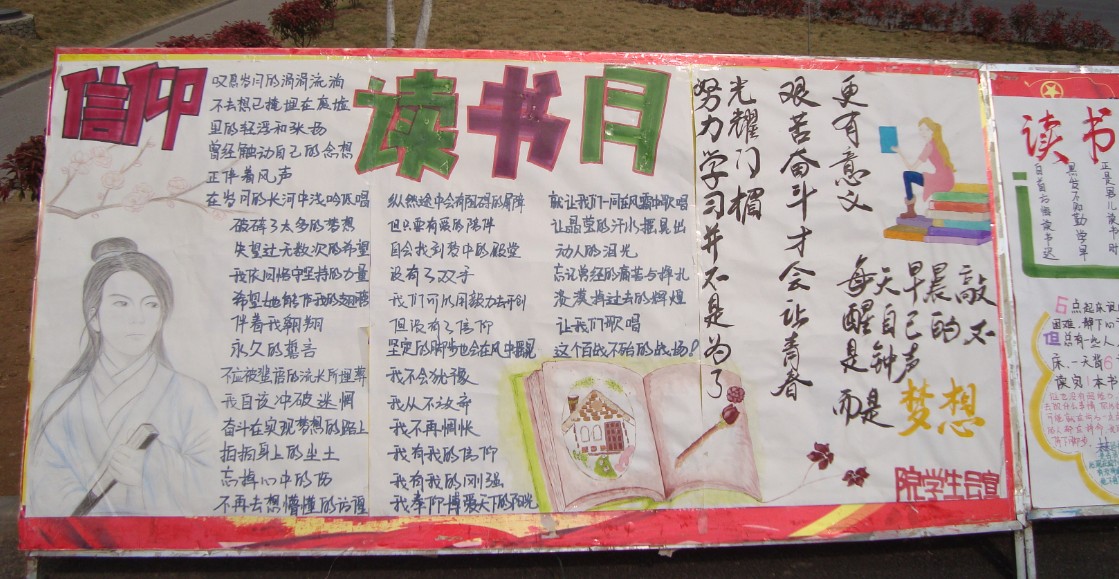 信仰
叹息岁月的涓涓流淌
不去想已掩埋在尘埃
里的轻浮和张扬
曾经触动自己的念想
正伴着风声
在岁月的长河中浅吟低唱
破碎了太多的梦想
失望过无数次的希望
我依同悟中坚持的力量
希望她能作我的翅膀
伴着我翱翔
永久的誓言
不应被尘语的流长所埋葬
我自该冲破迷惘
奋斗在实现梦想的路上
拍拍身上的尘土
忘掉心中的伤
不再去想懵懂的彷徨
读书月
纵然途中会有阻碍的屏障
但只要有爱的陪伴
自会找到梦中的殿堂
没有了双手
我们可以用毅力去开创
但没有了信仰
坚定的脚步也会在风中摇晃
我不会犹豫
我从不放弃
我不再惆怅
我有我的信仰
我有我的刚强
我奉仰博爱天下的阳光
就让我们一同在风霜中歌唱
让晶莹的汗水摆晃出
动人的泪光
忘记曾经的痛苦与挣扎
泼漠掉过去的辉煌
让我们歌唱
这个百战不殆的战场!
努力学习并不是为了
光耀门楣
艰苦奋斗才会让青春
更有意义
每天早晨敲
醒自己的不
是钟声
而是梦想
院学生会宣
读书
正是男儿读书时
黑发不知勤学早
白首方悔读书迟
6点起床
困难,静下
但总有些人
床,一天背6
读完1本书